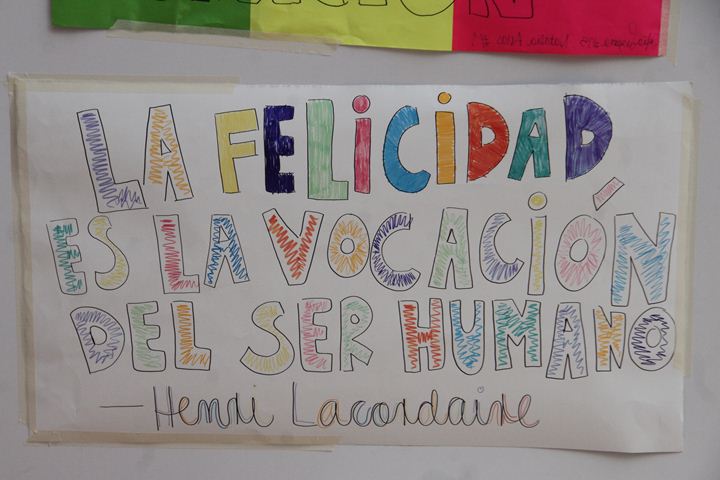 LA FELICIDAD
ES LA VOCACIÓN
DEL SER HUMANO
— Henri Lacordaire